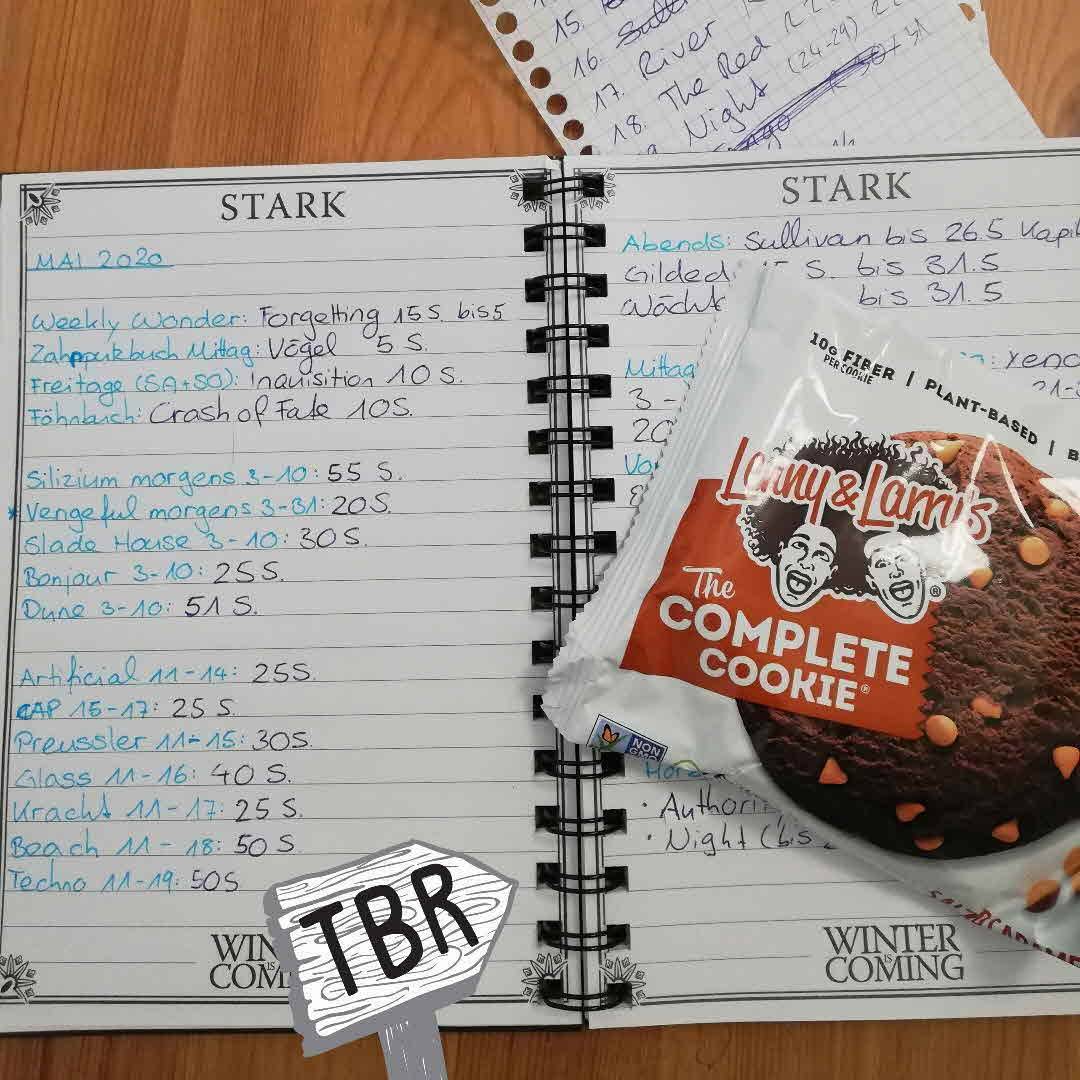 15.
16.
17. River
18. The Red
Night (24-29)
STARK
MAI 2020
Weekly Wonder: Forgetting 15 S. bis 5
Zahnputzbuch Mittag: Vögel 5 S.
Freitage (SA+SO): Inquisition 10 S.
Föhnbuch: Crash of Fate 10S.
Silizium morgens 3-10: 55 S.
* Vengeful morgens 3-31: 20S.
Slade House 3-10: 30 S.
Bonjour 3-10: 25 S.
Dune 3-10: 51 S.
Artificial 11-14: 25S.
CAP 15-17: 25 S.
Preussler 11-15: 30S.
Glass 11-16: 40 S.
Kracht 11-17: 25 S.
Beach 11-18: 50 S.
Techno 11-19: 50S
WIN
IS
COMI
TBR
STARK
Abends: Sullivan bis 26.5 Kapi
Gilded 15 S. bis 31.5
Wächt bis 31.5
Mittag : Xeno
3-
20
Vo
Hör
· Authori
· Night (bis
WINTER
IS
COMING
10G FIBER | PLANT-BASED |
PER COOKIE
Lenny & Larry's
The
COMPLETE
COOKIE®
NON
GMO